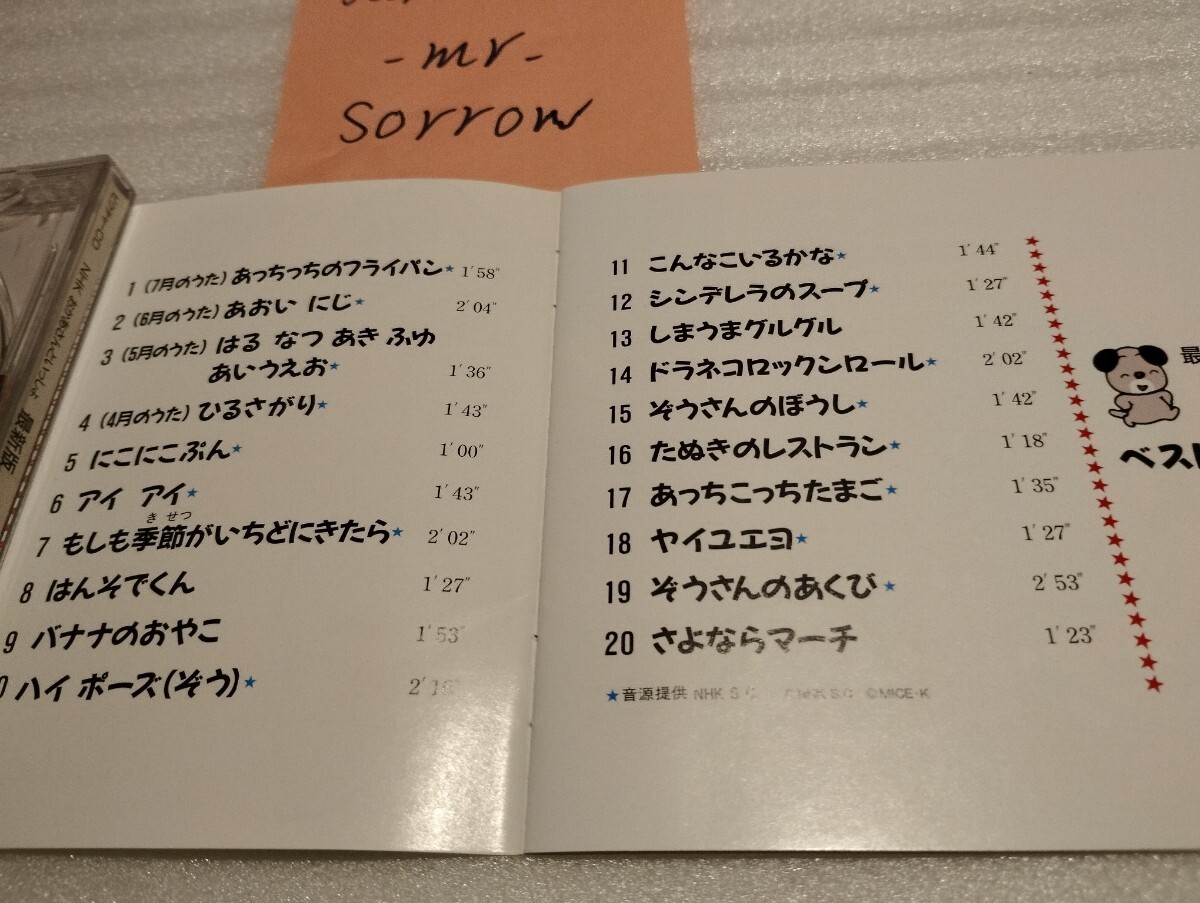 -mr-
Sorrow
ピクチャーCD NHK おかあさんといっしょ 最新版
1 (7月のうた) あっちっちのフライパン★ 1'58"
2 (6月のうた) あおい にじ★ 2'04"
3 (5月のうた) はる なつ あき ふゆ
あいうえお★ 1'36"
4 (4月のうた) ひるさがり★ 1'43"
5 にこにこぷん★ 1'00"
6 アイ アイ★ 1'43"
きせつ
7 もしも季節がいちどにきたら★ 2'02"
8 はんそでくん 1'27"
9 バナナのおやこ 1'53"
0 ハイ ポーズ(ぞう)★
11 こんなこいるかな★ 1'44"
12 シンデレラのスープ★ 1'27"
13 しまうまグルグル 1'42"
14 ドラネコロックンロール★ 2'02"
15 ぞうさんのぼうし★ 1'42"
16 たぬきのレストラン★ 1'18"
17 あっちこっちたまご★ 1'35"
18 ヤイユエヨ★ 1'27"
19 ぞうさんのあくび★ 2'53"
20 さよならマーチ 1'23"
★音源提供 NHK S.C. NHK S.C. ©MICE・K
最
ベス